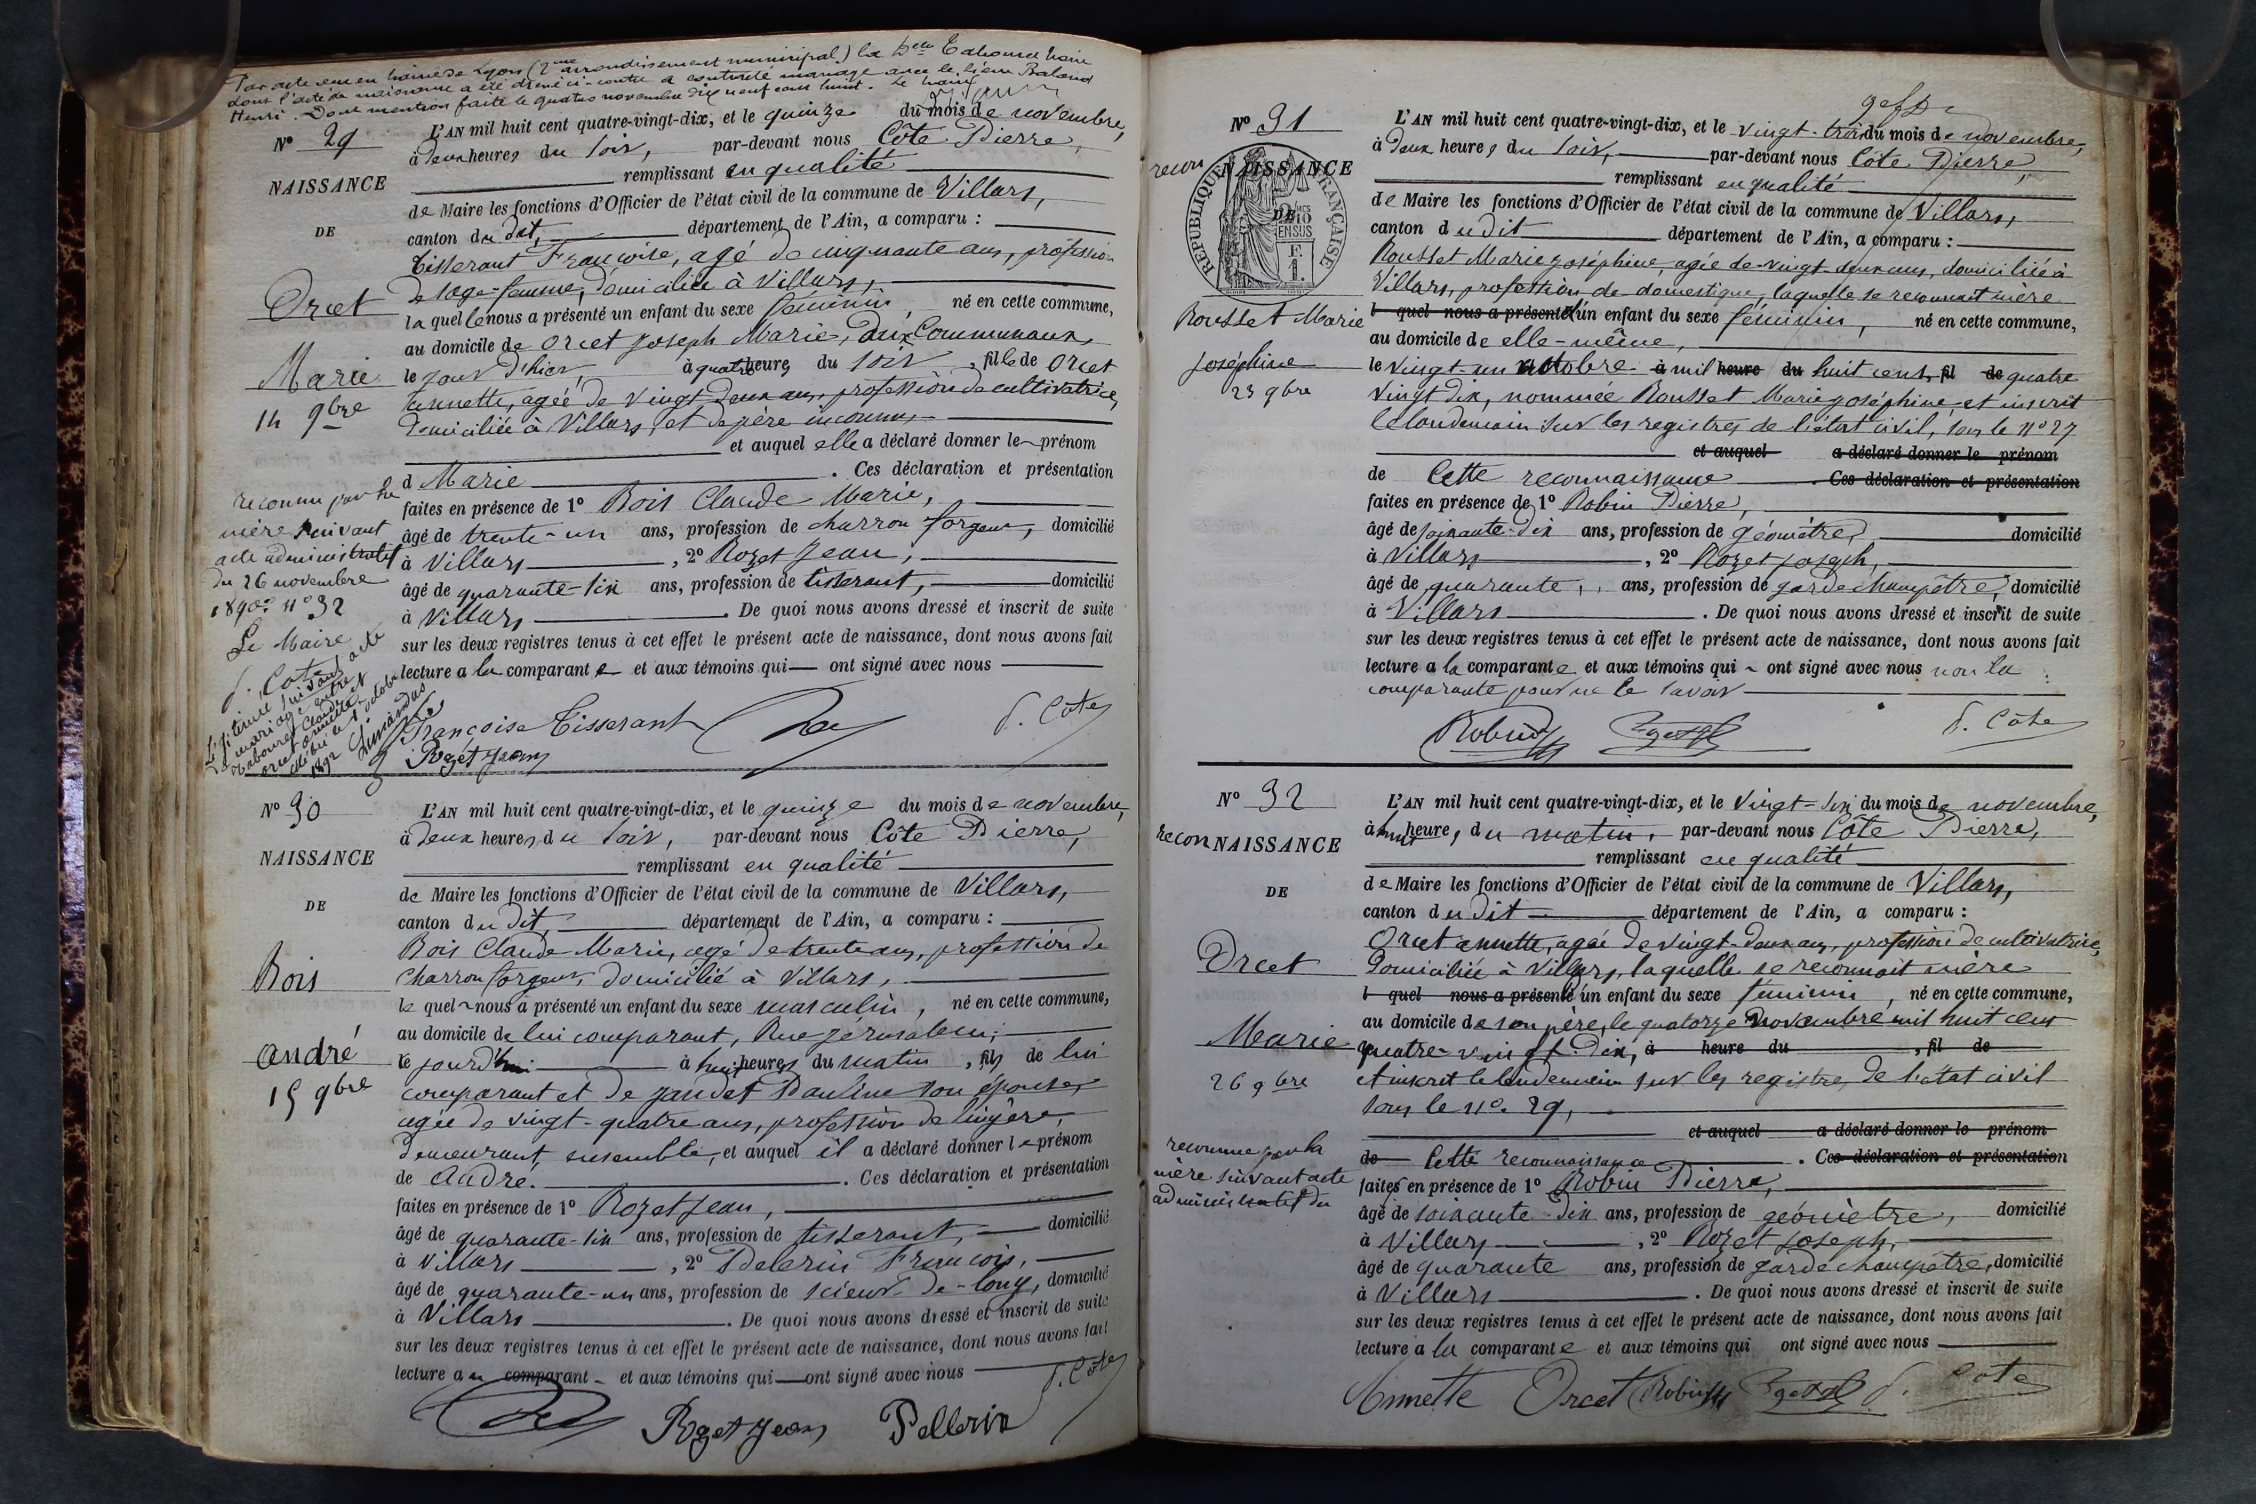 Par acte reçu en mairie de Lyon (2me arrondissement municipal) la Delle Tabouret Marie
dont l'acte de naissance a été dressé ci-contre a contracté mariage avec le sieur Baland
Henri. Dont mention faite le quatre novembre dix neuf cent huit. Le Maire
No 29
NAISSANCE
DE
Orcet
Marie
14 9bre
reconnue par la
mère suivant
acte administratif
du 26 novembre
1890. No 32
Le Maire
P. Côte
Légitimée suivant acte
de mariage entre
Tabouret Claude et
Orcet Annette
célébré le 1 octobre
1892
L'AN mil huit cent quatre-vingt-dix, et le quinze du mois de novembre,
à deux heures du soir, par-devant nous Côte Pierre,
remplissant en qualité
de Maire les fonctions d'Officier de l'état civil de la commune de Villars,
canton du dit, département de l'Ain, a comparu :
Tisserant Françoise, agé de cinquante ans, profession
de sage-femme, domiciliée à Villars,
la quelle nous a présenté un enfant du sexe féminin, né en cette commune,
au domicile de Orcet Joseph Marie, aux Communaux,
le jour d'hier, à quatre heures du soir, fille de Orcet
Annette, agée de vingt-deux ans, profession de cultivatrice,
domiciliée à Villars, et de père inconnu,
et auquel elle a déclaré donner le prénom
d Marie. Ces déclaration et présentation
faites en présence de 1o Bois Claude Marie,
âgé de trente-un ans, profession de charron forgeur, domicilié
à Villars, 2o Rozet Jean,
âgé de quarante-six ans, profession de tisserant, domicilié
à Villars. De quoi nous avons dressé et inscrit de suite
sur les deux registres tenus à cet effet le présent acte de naissance, dont nous avons fait
lecture a la comparante et aux témoins qui ont signé avec nous
Françoise Tisserant P. Côte
Rozet Jean
No 30
NAISSANCE
DE
Bois
André
15 9bre
L'AN mil huit cent quatre-vingt-dix, et le quinze du mois de novembre,
à deux heures du soir, par-devant nous Côte Pierre,
remplissant en qualité
de Maire les fonctions d'Officier de l'état civil de la commune de Villars,
canton du dit, département de l'Ain, a comparu :
Bois Claude Marie, agé de trente ans, profession de
charron forgeur, domicilié à Villars,
le quel nous a présenté un enfant du sexe masculin, né en cette commune,
au domicile de lui comparant, Rue Jérusalem,
le jourd'hui à huit heures du matin, fils de lui
comparant et de Jandet Pauline son épouse,
agée de vingt-quatre ans, profession de lingère,
demeurant ensemble, et auquel il a déclaré donner le prénom
de André. Ces déclaration et présentation
faites en présence de 1o Rozet Jean,
âgé de quarante-six ans, profession de tisserant, domicilié
à Villars, 2o Pelerin François,
âgé de quarante-un ans, profession de scieur-de-long, domicilié
à Villars. De quoi nous avons dressé et inscrit de suite
sur les deux registres tenus à cet effet le présent acte de naissance, dont nous avons fait
lecture au comparant et aux témoins qui ont signé avec nous
P. Côte
Rozet Jean Pellerin
No 31
recon NAISSANCE
DE
RÉPUBLIQUE FRANÇAISE
Rousset Marie
Joséphine
23 9bre
L'AN mil huit cent quatre-vingt-dix, et le vingt-trois du mois de novembre,
à deux heures du soir, par-devant nous Côte Pierre,
remplissant en qualité
de Maire les fonctions d'Officier de l'état civil de la commune de Villars,
canton du dit département de l'Ain, a comparu :
Rousset Marie Joséphine, agée de vingt-deux ans, domiciliée à
Villars, profession de domestique, laquelle se reconnait mère
l quel nous a présenté d'un enfant du sexe féminin, né en cette commune,
au domicile de elle-même,
le vingt-un octobre à mil heure du huit cent, fil de quatre
vingt dix, nommée Rousset Marie Joséphine, et inscrit
le lendemain sur les registres de l'état civil, sous le No 27
et auquel a déclaré donner le prénom
de Cette reconnaissance. Ces déclaration et présentation
faites en présence de 1o Robin Pierre,
âgé de soixante-dix ans, profession de géomètre, domicilié
à Villars, 2o Rozet Joseph,
âgé de quarante ans, profession de garde champêtre, domicilié
à Villars. De quoi nous avons dressé et inscrit de suite
sur les deux registres tenus à cet effet le présent acte de naissance, dont nous avons fait
lecture a la comparante et aux témoins qui ont signé avec nous non la
comparante pour ne le savoir
Robin P. Côte
No 32
recon NAISSANCE
DE
Orcet
Marie
26 9bre
reconnue par la
mère suivant acte
administratif du
L'AN mil huit cent quatre-vingt-dix, et le vingt-six du mois de novembre,
à huit heures du matin, par-devant nous Côte Pierre,
remplissant en qualité
de Maire les fonctions d'Officier de l'état civil de la commune de Villars,
canton du dit département de l'Ain, a comparu :
Orcet Annette, agée de vingt-deux ans, profession de cultivatrice,
domiciliée à Villars, laquelle se reconnait mère
l quel nous a présenté d'un enfant du sexe féminin, né en cette commune,
au domicile de son père, le quatorze novembre mil huit cent
quatre-vingt-dix, à heure du, fil de
et inscrit le lendemain sur les registres de l'état civil
sous le No. 29,
et auquel a déclaré donner le prénom
de Cette reconnaissance. Ces déclaration et présentation
faites en présence de 1o Robin Pierre,
âgé de soixante-dix ans, profession de géomètre, domicilié
à Villars, 2o Rozet Joseph,
âgé de quarante ans, profession de garde champêtre, domicilié
à Villars. De quoi nous avons dressé et inscrit de suite
sur les deux registres tenus à cet effet le présent acte de naissance, dont nous avons fait
lecture a la comparante et aux témoins qui ont signé avec nous
Annette Orcet Robin P. Côte